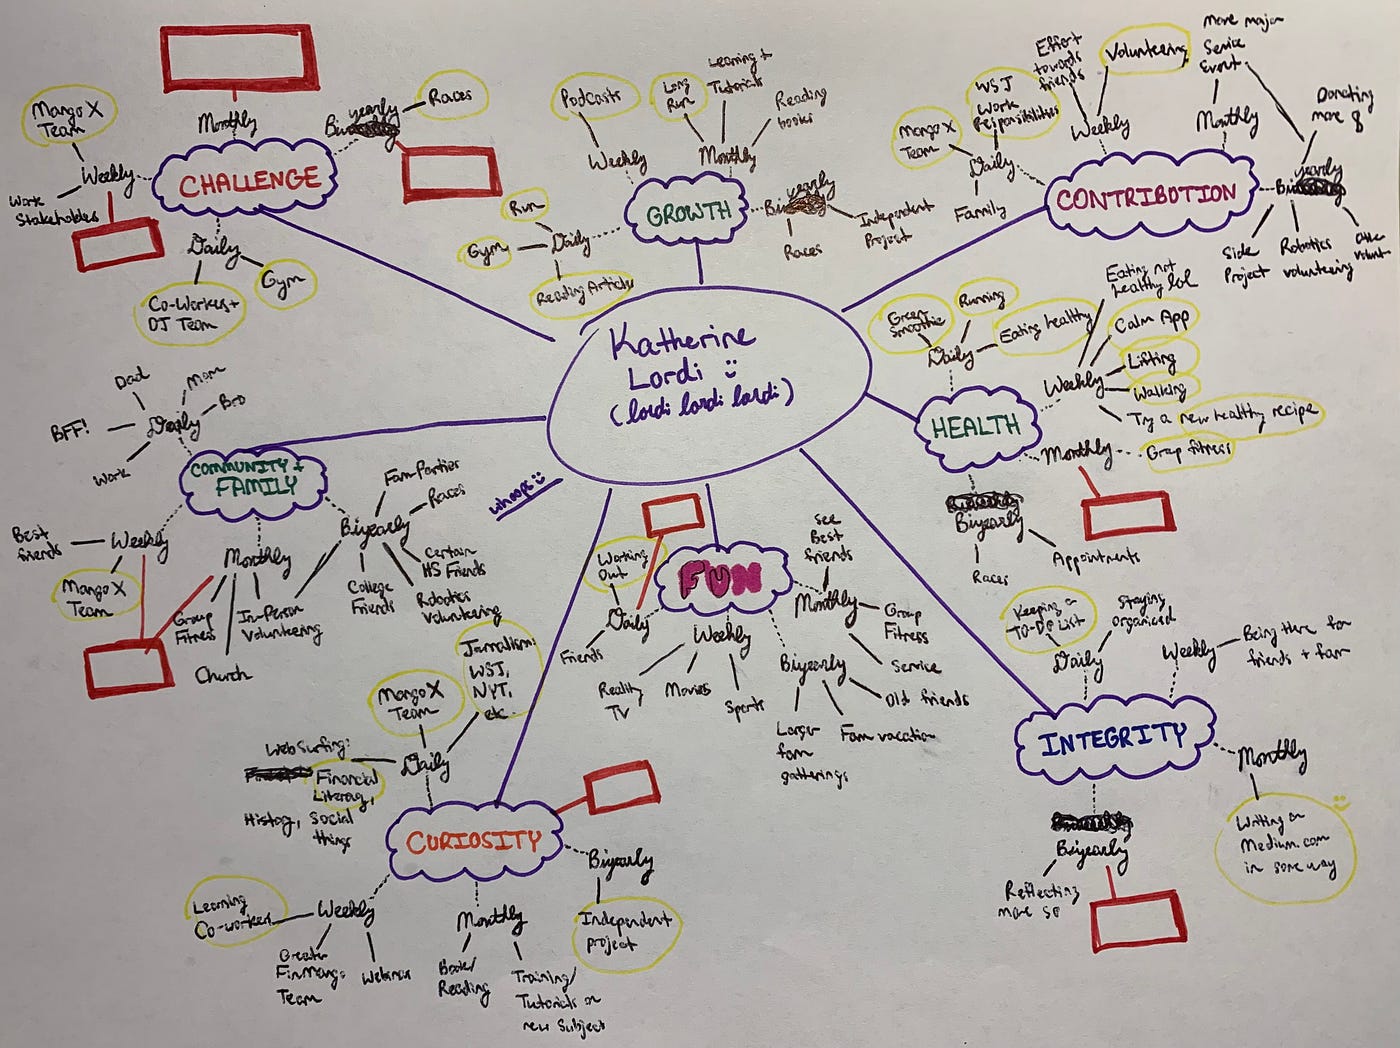 Katherine
Lordi
(lordi lordi lordi)
whoops
CHALLENGE
Monthly
yearly
Races
Mango X
Team
Weekly
Work
Stakeholders
Daily
Co-Workers +
DJ Team
Gym
GROWTH
Podcasts
Weekly
Long
Run
Learning +
Tutorials
Reading
books
Monthly
yearly
Races
Independent
Project
Daily
Run
Gym
Reading Articles
CONTRIBUTION
Mango X
Team
WSJ
Work
Responsibilities
Daily
Family
Effort
towards
friends
Volunteering
Weekly
More major
Service
Event
Monthly
Donating
more
yearly
Side
Project
Robotics
volunteering
HEALTH
Green
Smoothie
Running
Eating healthy
Daily
Eating not
healthy lol
Calm App
Lifting
Walking
Try a new healthy recipe
Weekly
Monthly
Group fitness
Biyearly
Races
Appointments
COMMUNITY +
FAMILY
Dad
Mom
Bro
BFF!
Work
Daily
Best
friends
Weekly
Mango X
Team
Monthly
Group
Fitness
Church
In-Person
Volunteering
Biyearly
Fam Parties
Races
Certain
HS Friends
College
Friends
Robotics
Volunteering
FUN
Working
Out
Daily
Friends
Weekly
Reality
TV
Movies
Sports
See
Best
friends
Monthly
Group
Fitness
Service
Old friends
Biyearly
Larger
fam
gatherings
Fam vacation
INTEGRITY
Keeping a
TO-DO LIST
Staying
organized
Daily
Weekly
Being there for
friends + fam
Monthly
Writing on
Medium.com
in some way
Biyearly
Reflecting
more so
CURIOSITY
Mango X
Team
Journalism:
WSJ,
NYT,
etc.
Daily
Web Surfing:
Financial
Literacy,
History, Social
things
Weekly
Learning
Co-workers
Greater
FinMango
Team
Webinar
Monthly
Book/
Reading
Training/
Tutorials on
new subject
Biyearly
Independent
project